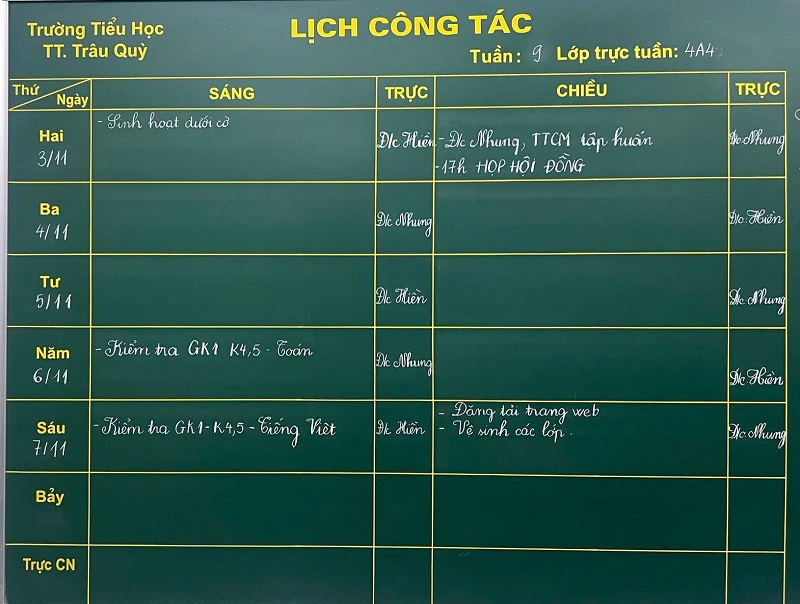 Trường Tiểu Học
TT. Trâu Quỳ
LỊCH CÔNG TÁC
Tuần: 9 Lớp trực tuần: 4A4
Thứ
Ngày
SÁNG
TRỰC
CHIỀU
TRỰC
Hai
3/11
- Sinh hoạt dưới cờ
Đ/c Hiền
- Đ/c Nhung, TTCM tập huấn
- 17h HỌP HỘI ĐỒNG
Đ/c Nhung
Ba
4/11
Đ/c Nhung
Đ/c: Hiền
Tư
5/11
Đ/c Hiền
Đ/c: Nhung
Năm
6/11
- Kiểm tra GK1 K4,5 - Toán
Đ/c Nhung
Đ/c Hiền
Sáu
7/11
- Kiểm tra GK1 - K4,5 - Tiếng Việt
Đ/c Hiền
- Đăng tải trang web
- Vệ sinh các lớp.
Đ/c: Nhung
Bảy
Trực CN